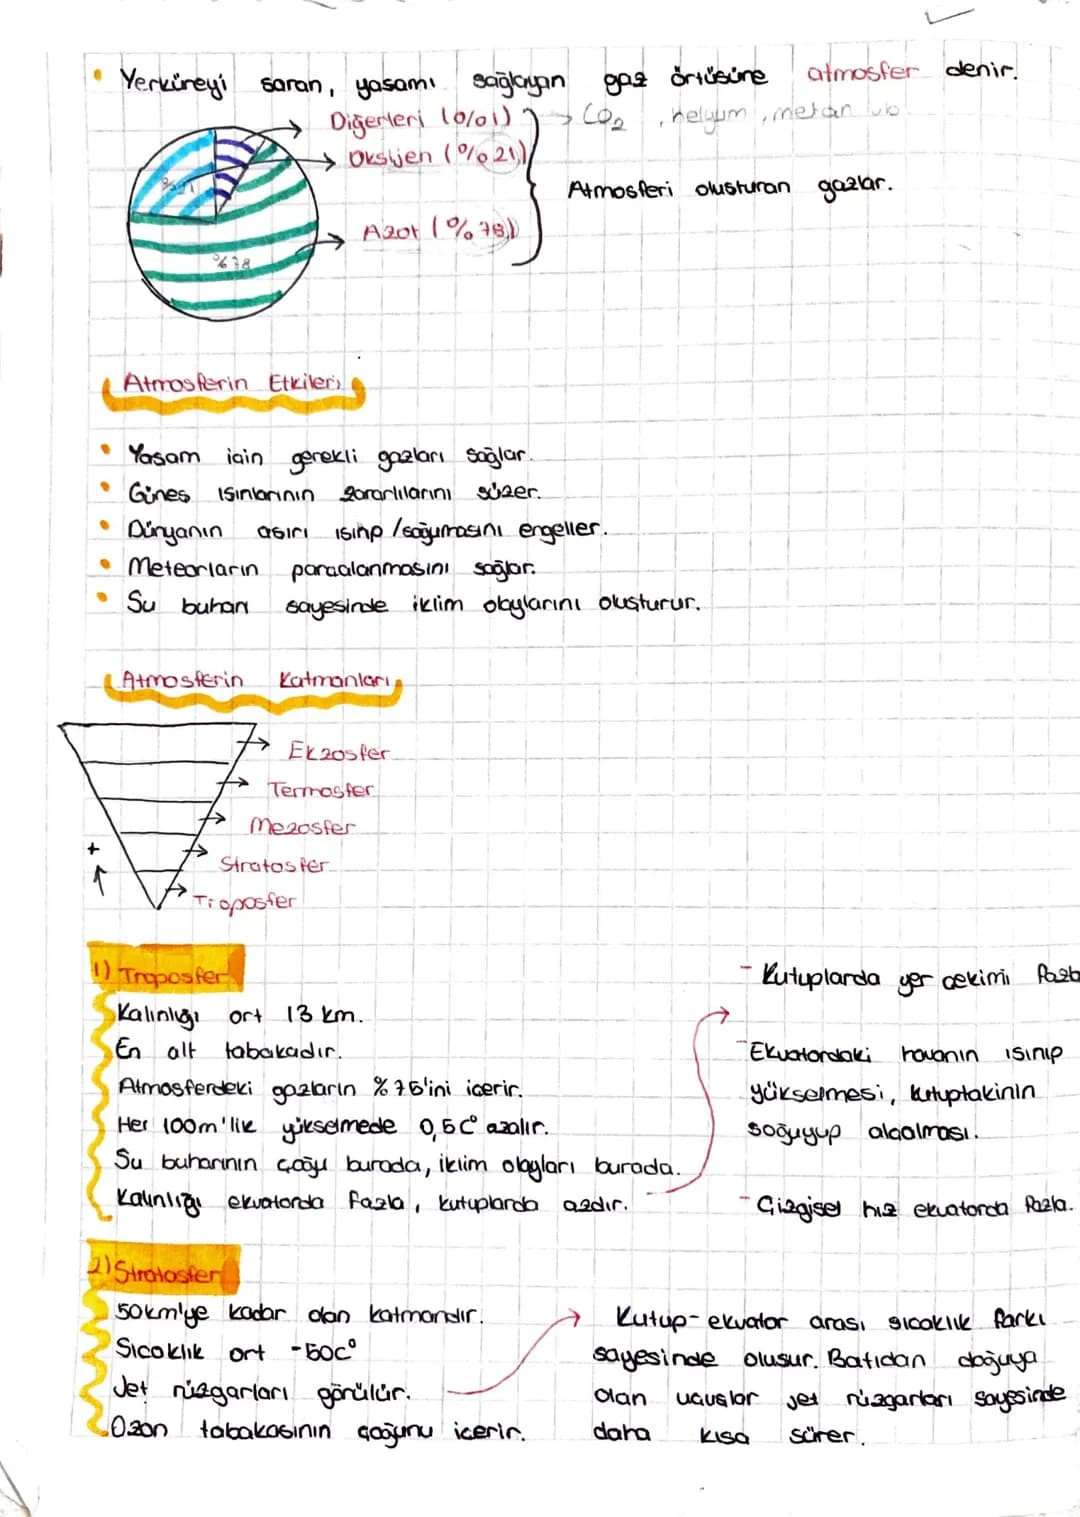 • Yerküreyi saran, yaşamı sağlayan gaz örtüsüne atmosfer denir.
Diğerleri (%1) → CO2, helyum, metan vb.
Oksijen (%21)
Azot (%78)
Atmosferi oluşturan gazlar.
%21
%78
Atmosferin Etkileri
• Yaşam için gerekli gazları sağlar.
• Güneş ışınlarının zararlılarını süzer.
• Dünyanın aşırı ısınıp/soğumasını engeller.
• Meteorların parçalanmasını sağlar.
• Su buharı sayesinde iklim olaylarını oluşturur.
Atmosferin Katmanları
Ekzosfer
Termosfer
Mezosfer
Stratosfer
Troposfer
+
1) Troposfer
Kalınlığı ort 13 km.
En alt tabakadır.
Atmosferdeki gazların %75'ini içerir.
Her 100m'lik yükselmede 0,5C° azalır.
Su buharının çoğu burada, iklim olayları burada.
Kalınlığı ekvatorda fazla, kutuplarda azdır.
- Kutuplarda yer çekimi fazla
- Ekvatordaki havanın ısınıp
yükselmesi, kutuptakinin
soğuyup alçalması.
- Çizgisel hız ekvatorda fazla.
2) Stratosfer
50km'ye kadar olan katmandır.
Sıcaklık ort -50C°
Jet rüzgarları görülür.
Ozon tabakasının çoğunu içerir.
Kutup-ekvator arası sıcaklık farkı
sayesinde oluşur. Batıdan doğuya
olan uçuşlar jet rüzgarları sayesinde
daha kısa sürer.